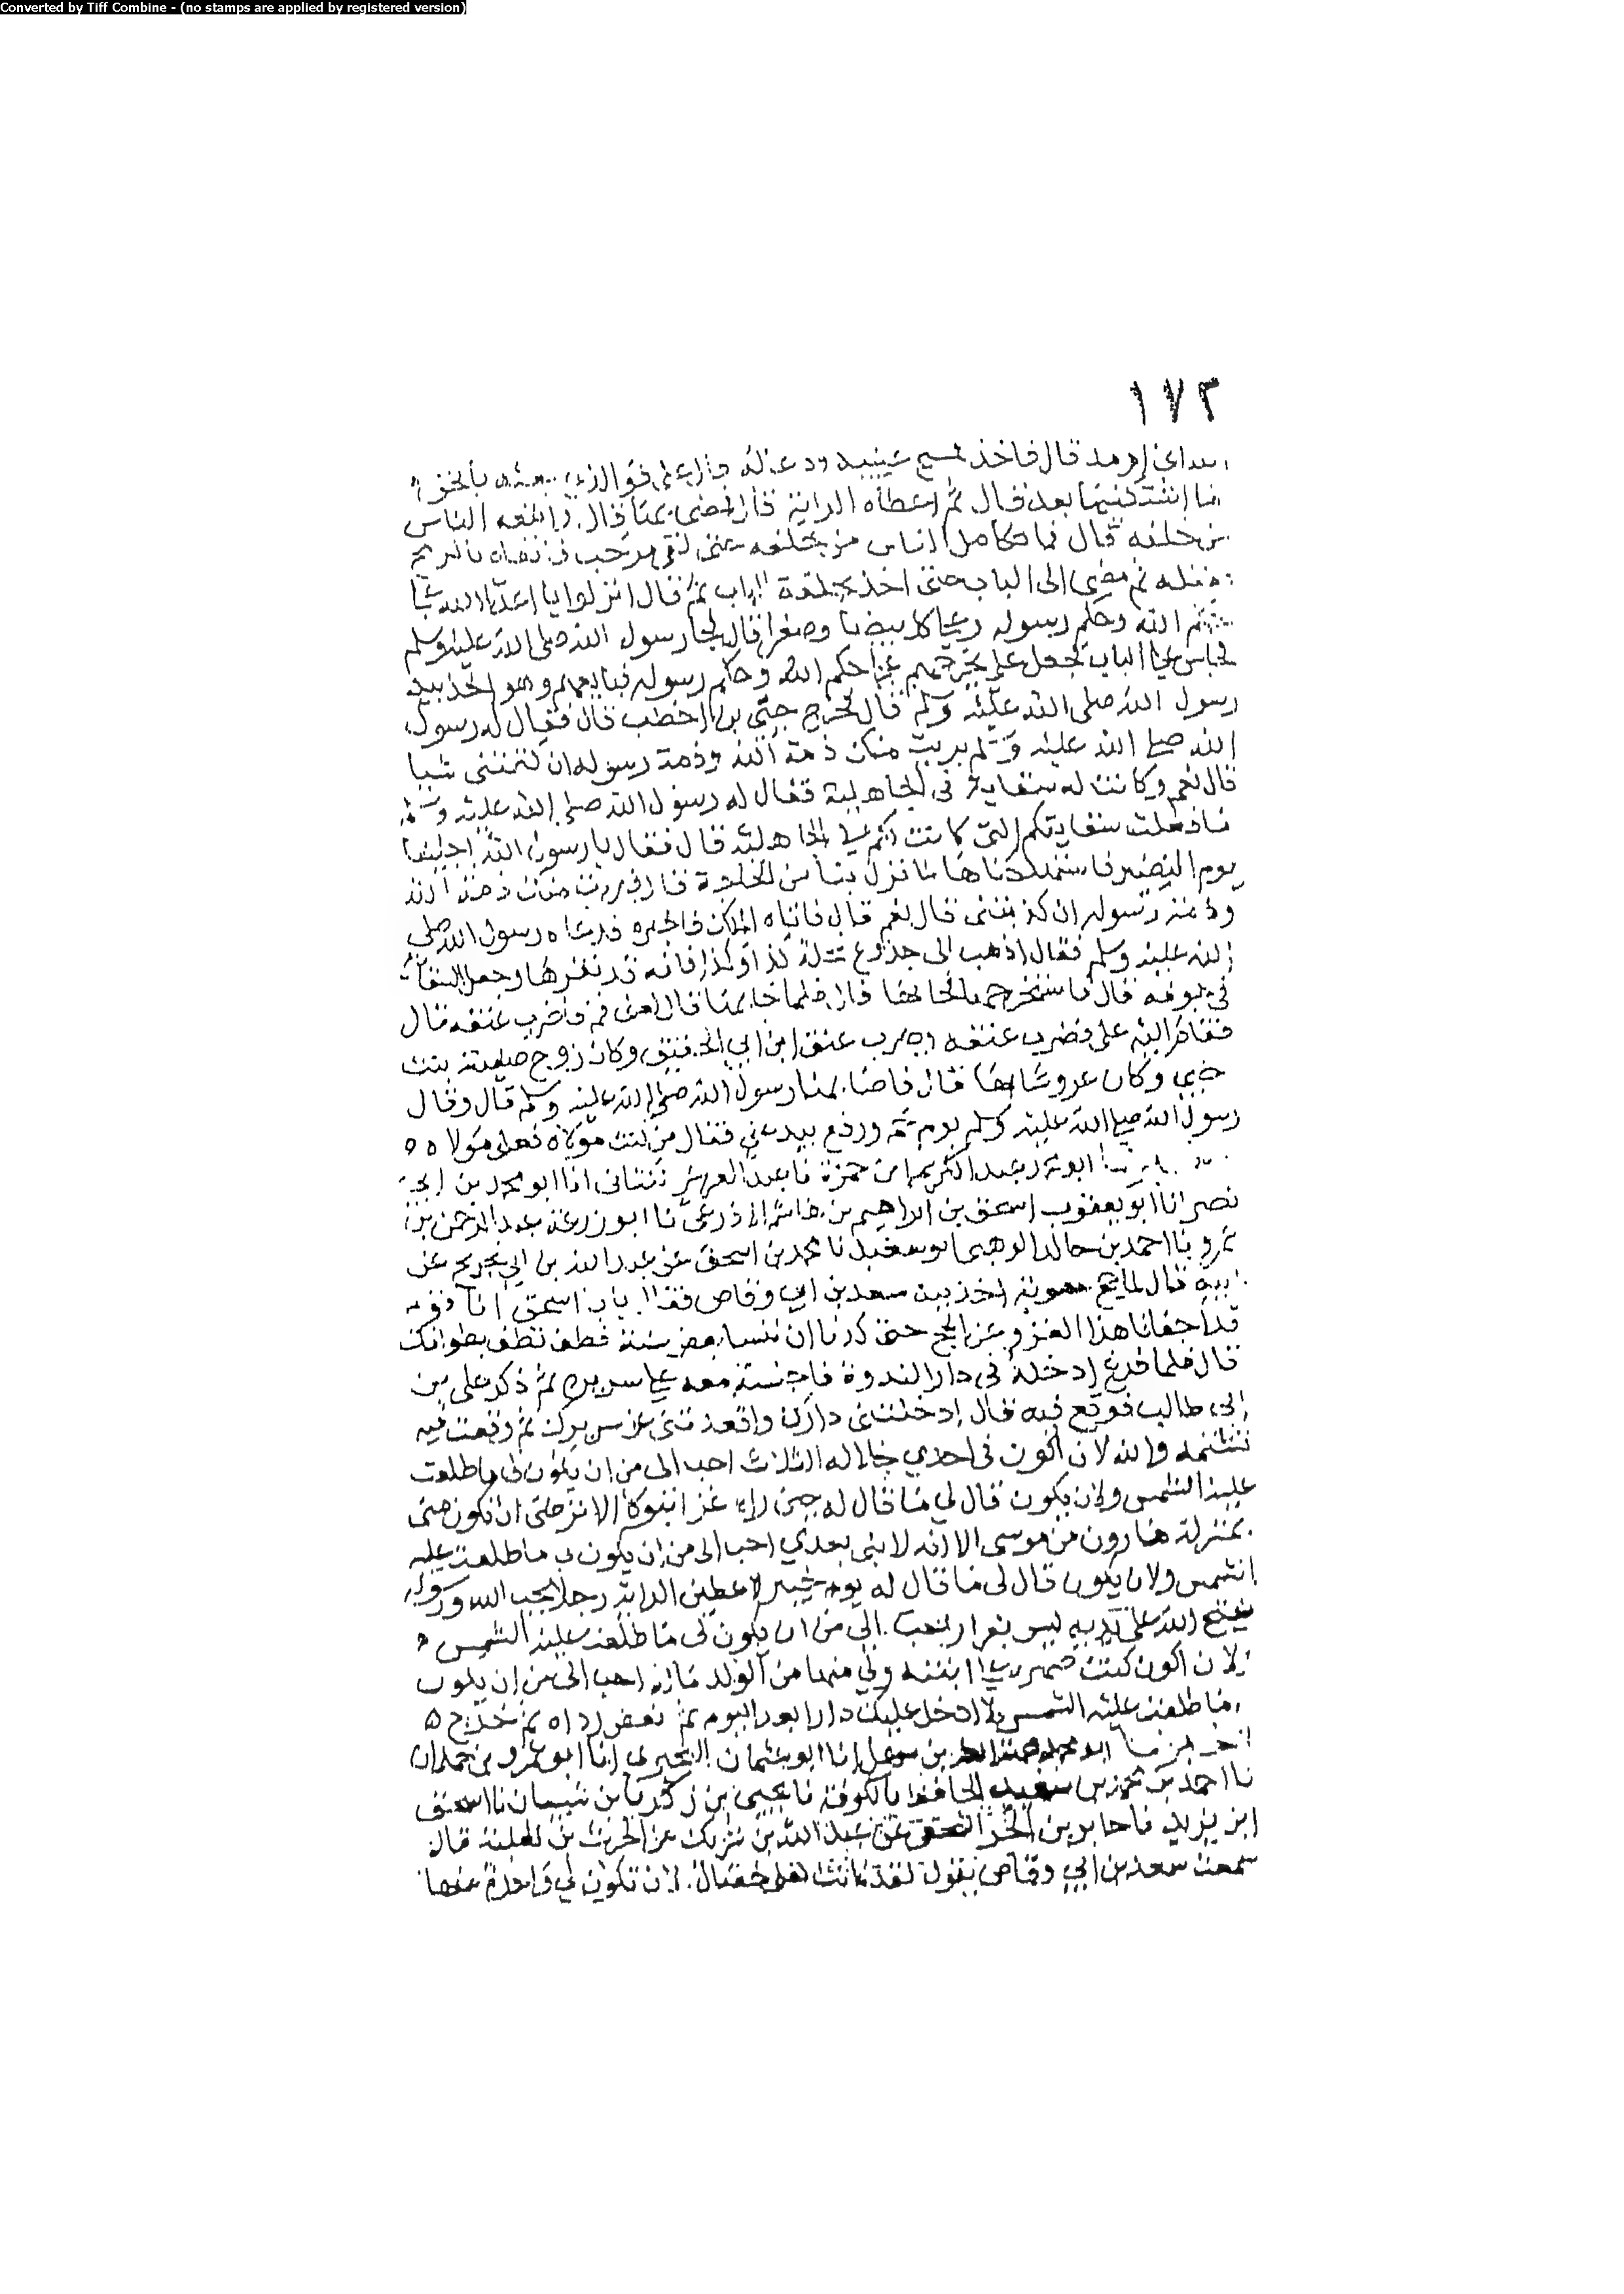 Converted by Tiff Combine - (no stamps are applied by registered version)
١٧٣
قال فاخذ يمسح عينيه ودعا له قال علي فوالذي بعثه بالحق
ما اشتكيتها بعد قال ثم اعطاه الراية قال فمضى بها قال واتبعه الناس
من خلفه قال فما تكامل الناس من خلفه حتى لقي مرحب فاتقاه بالرمح
فقتله ثم مضى الى الباب حتى اخذ بحلقة الباب ثم قال انزلوا يا اعداء الله على
حكم الله وحكم رسوله وعلى كل بيضا وصفرا قال فجا رسول الله صلى الله عليه وسلم
فجلس على الباب فجعل علي يخرجهم على حكم الله وحكم رسوله فيبايعهم وهو اخذ بيد
رسول الله صلى الله عليه وسلم قال فخرج حيي بن اخطب قال فقال له رسول
الله صلى الله عليه وسلم برئت منك ذمة الله وذمة رسوله ان كتمتني شيا
قال نعم وكانت له سقاية في الجاهلية فقال له رسول الله صلى الله عليه وسلم
ما فعلت سقايتكم التي كانت لكم في الجاهلية قال فقال يا رسول الله اجلينا
يوم النضير فاستهلكناها لما نزل بنا من الحاجة قال فبرئت منك ذمة الله
وذمة رسوله ان كذبتني قال نعم قال فاتاه الملك فاخبره فدعاه رسول الله صلى
الله عليه وسلم فقال اذهب الى جذوع نخلة كذا وكذا فانه قد نقرها وجعل السقاية
في جوفه قال فاستخرجها فجا بها قال فلما جا بها قال لعلي قم فاضرب عنقه قال
فقام اليه علي فضرب عنقه وضرب عنق ابن ابي الحقيق وكان زوج صفية بنت
حيي وكان عروسا بها قال فاصابها رسول الله صلى الله عليه وسلم قال وقال
رسول الله صلى الله عليه وسلم يومئذ ورفع بيد علي فقال من كنت مولاه فعلي مولاه ه
ابو محمد عبد الكريم بن حمزة نا عبد العزيز الكتاني انا ابو محمد بن ابي
نصر انا ابو يعقوب اسحق بن ابراهيم بن هاشم الاذرعي نا ابو زرعة عبد الرحمن بن
عمرو نا احمد بن خالد الوهبي ابو سعيد نا محمد بن اسحق عن عبد الله بن ابي نجيح عن
ابيه قال لما حج معوية اخذ بيد سعد بن ابي وقاص فقال يابا اسحق انا قوم
قد اجفانا هذا الغزو عن الحج حتى كدنا ان ننسا بعض سننه فطف نطف بطوافك
قال فلما فرغ ادخله في دار الندوة فاجلسه معه على سريره ثم ذكر علي بن
ابي طالب فوقع فيه قال ادخلتني دارك واقعدتني على سريرك ثم وقعت فيه
تشتمه والله لان اكون في احدي خلاله الثلاث احب الى من ان يكون لي ما طلعت
عليه الشمس ولان يكون قال لي ما قال له حين راه غزا تبوكا الا ترضى ان تكون مني
بمنزلة هارون من موسى الا انه لا نبي بعدي احب الى من ان يكون لي ما طلعت عليه
الشمس ولان يكون قال لي ما قال له يوم خيبر لاعطين الراية رجلا يحب الله ورسوله
يفتح الله على يديه ليس بفرار احب الى من ان يكون لي ما طلعت عليه الشمس
ولان اكون كنت صهره على ابنته ولي منها من الولد ماله احب الى من ان يكون
لي ما طلعت عليه الشمس لا ادخل عليك دارا بعد اليوم ثم نفض رداه ثم خرج ه
اخبرنا ابو محمد هبة الله بن سهل انا ابو عثمان البحيري انا ابو عمرو بن حمدان
نا احمد بن محمد بن سعيد الحافظ بالكوفة نا يحيى بن زكريا بن شيبان نا اسحق
ابن يزيد نا جابر بن الحر النخعي عن عبد الله بن شريك عن الحرث بن ثعلبة قال
سمعت سعد بن ابي وقاص يقول لقد كانت لعلي خصال لان تكون لي واحدة منها